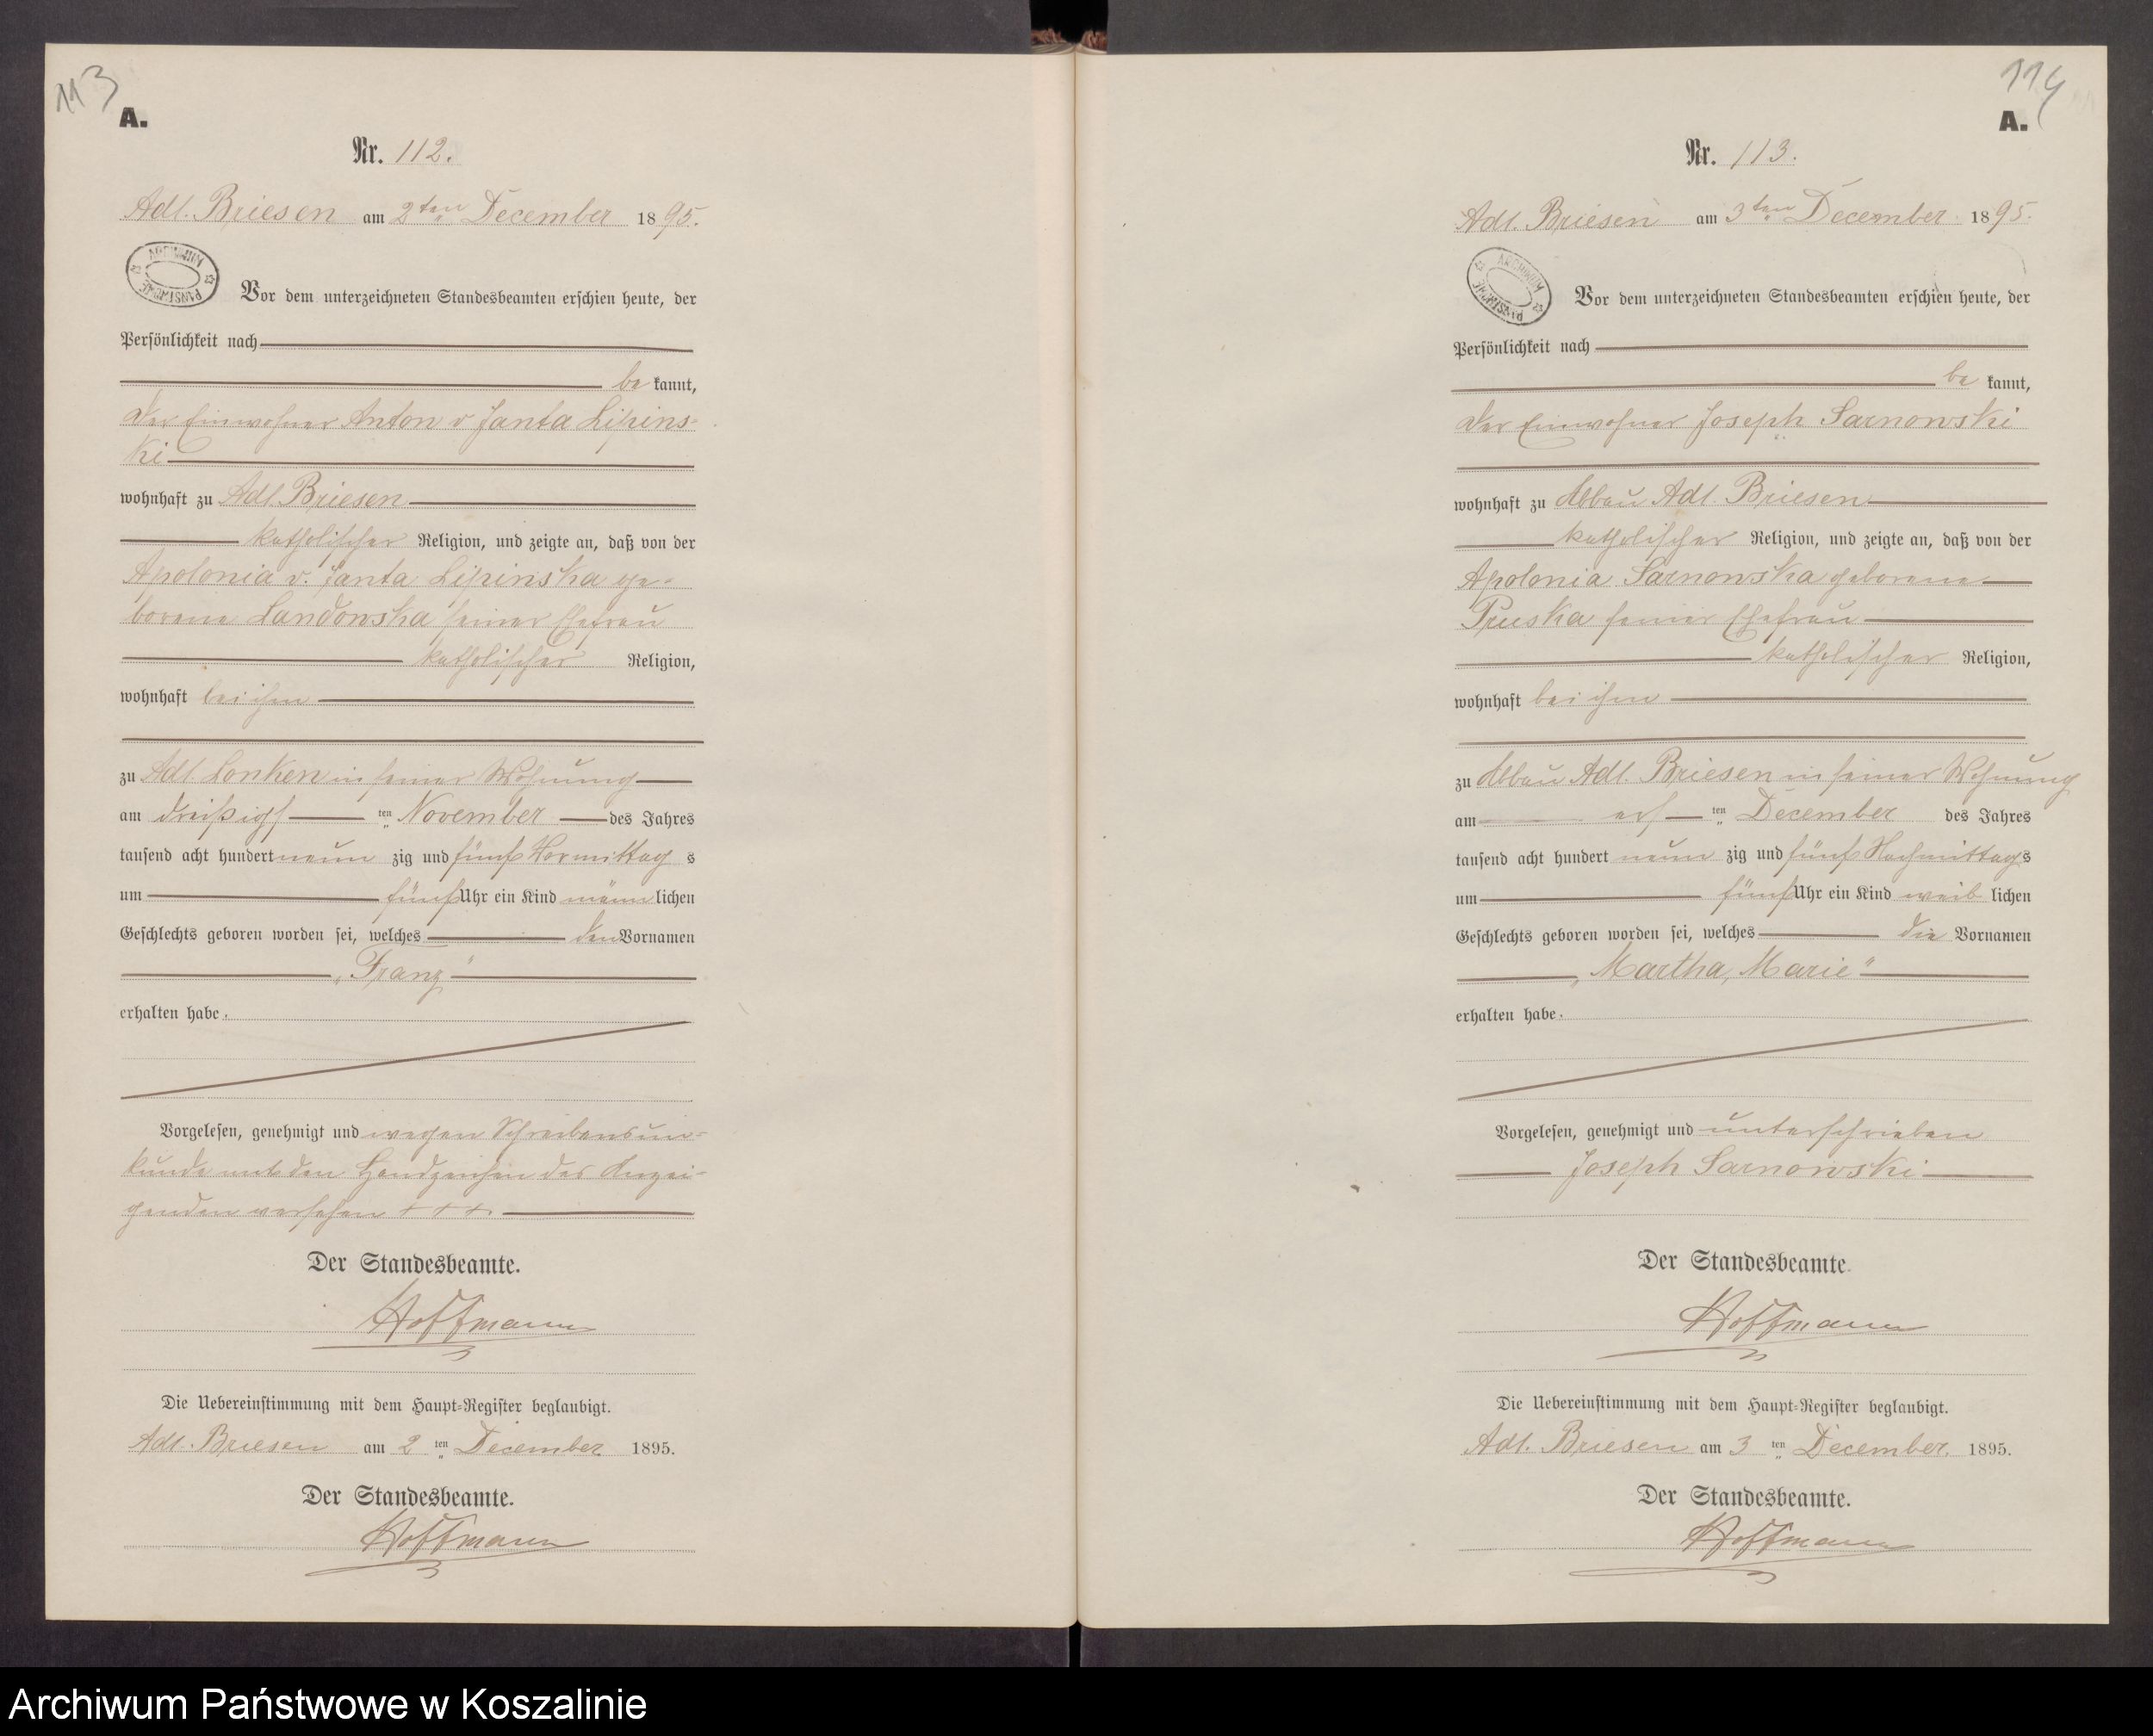 113
A.
Nr. 112.
Adl. Briesen am 2ten December 1895.
ARCHIWUM PAŃSTWOWE
Vor dem unterzeichneten Standesbeamten erschien heute, der
Persönlichkeit nach
be kannt,
der Einwohner Anton v Janta Lipins-
ki
wohnhaft zu Adl. Briesen
katholischer Religion, und zeigte an, daß von der
Apolonia v. Janta Lipinska ge-
borene Landowska seiner Ehefrau
katholischer Religion,
wohnhaft bei ihm
zu Adl Lonken in seiner Wohnung
am dreißigst ten November des Jahres
tausend acht hundert neun zig und fünf Vormittag s
um fünf Uhr ein Kind männ lichen
Geschlechts geboren worden sei, welches den Vornamen
„Franz"
erhalten habe.
Vorgelesen, genehmigt und wegen Schreibensun-
kunde mit den Handzeichen des Anzei-
genden versehen + + +.
Der Standesbeamte.
Hoffmann
Die Uebereinstimmung mit dem Haupt-Register beglaubigt.
Adl. Briesen am 2 ten December 1895.
Der Standesbeamte.
Hoffmann
114
A.
Nr. 113.
Adl. Briesen am 3ten December 1895.
ARCHIWUM PAŃSTWOWE
Vor dem unterzeichneten Standesbeamten erschien heute, der
Persönlichkeit nach
be kannt,
der Einwohner Joseph Sarnowski
wohnhaft zu Abbau Adl. Briesen
katholischer Religion, und zeigte an, daß von der
Apolonia Sarnowska geborene
Pruska seiner Ehefrau
katholischer Religion,
wohnhaft bei ihm
zu Abbau Adl. Briesen in seiner Wohnung
am erst ten December des Jahres
tausend acht hundert neun zig und fünf Nachmittags
um fünf Uhr ein Kind weib lichen
Geschlechts geboren worden sei, welches die Vornamen
„Martha, Marie"
erhalten habe.
Vorgelesen, genehmigt und unterschrieben
Joseph Sarnowski
Der Standesbeamte.
Hoffmann
Die Uebereinstimmung mit dem Haupt-Register beglaubigt.
Adl. Briesen am 3 ten December. 1895.
Der Standesbeamte.
Hoffmann
Archiwum Państwowe w Koszalinie